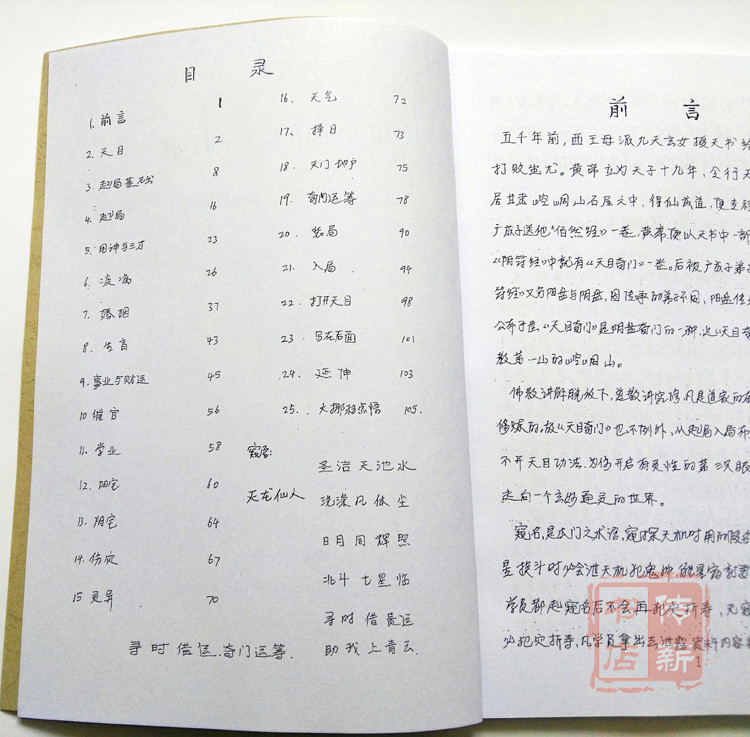 目 录
1. 前言 1
2. 天目 2
3. 起局基础 8
4. 起局 16
5. 用神与三才 23
6. 流年 26
7. 婚姻 37
8. 生育 43
9. 事业与财运 45
10 催官 56
11. 学业 58
12. 阳宅 60
13. 阴宅 64
14. 伤灾 67
15 灵异 70
16. 天气 72
17. 择日 73
18. 天门地户 75
19. 奇门运筹 78
20. 终局 90
21. 入局 94
22. 打开天目 98
23. 写在后面 101
24. 延伸 103
25. 大挪移点悟 105.
窥名:
天龙仙人
圣洁天池水
洗涤凡体尘
日月同辉照
北斗七星临
寻时借贵运
助我上青云.
寻时借运.奇门运筹.
前 言
五千年前,西王母派九天玄女授天书给
打败蚩尤。黄帝立为天子十九年,令行天
居甘肃崆峒山石屋之中,得仙成道,便去
广成子送他《自然经》一卷,黄帝便以天书中一部
《阴符经》中就有《天目奇门》一卷。后被广成子弟
符经》又分阳盘与阴盘,因传承的弟子不同,阳盘传
公布于世,《天目奇门》是阴盘奇门的一种,这《天目奇
教第一山的崆峒山。
佛教讲解脱放下,道教讲究修,凡是道家的
修炼的,故《天目奇门》也不例外,从起局入局
不开天目功法,为你开启有灵性的第三只眼
走向一个玄妙通灵的世界。
窥名,是本门之术语,窥探天机时用的假名
星换斗时必会泄天机犯鬼神,
学员都起窥名后不会再犯灾折寿,无窥
必犯灾折寿,凡学员拿出去泄露资料内容
1
传新书店